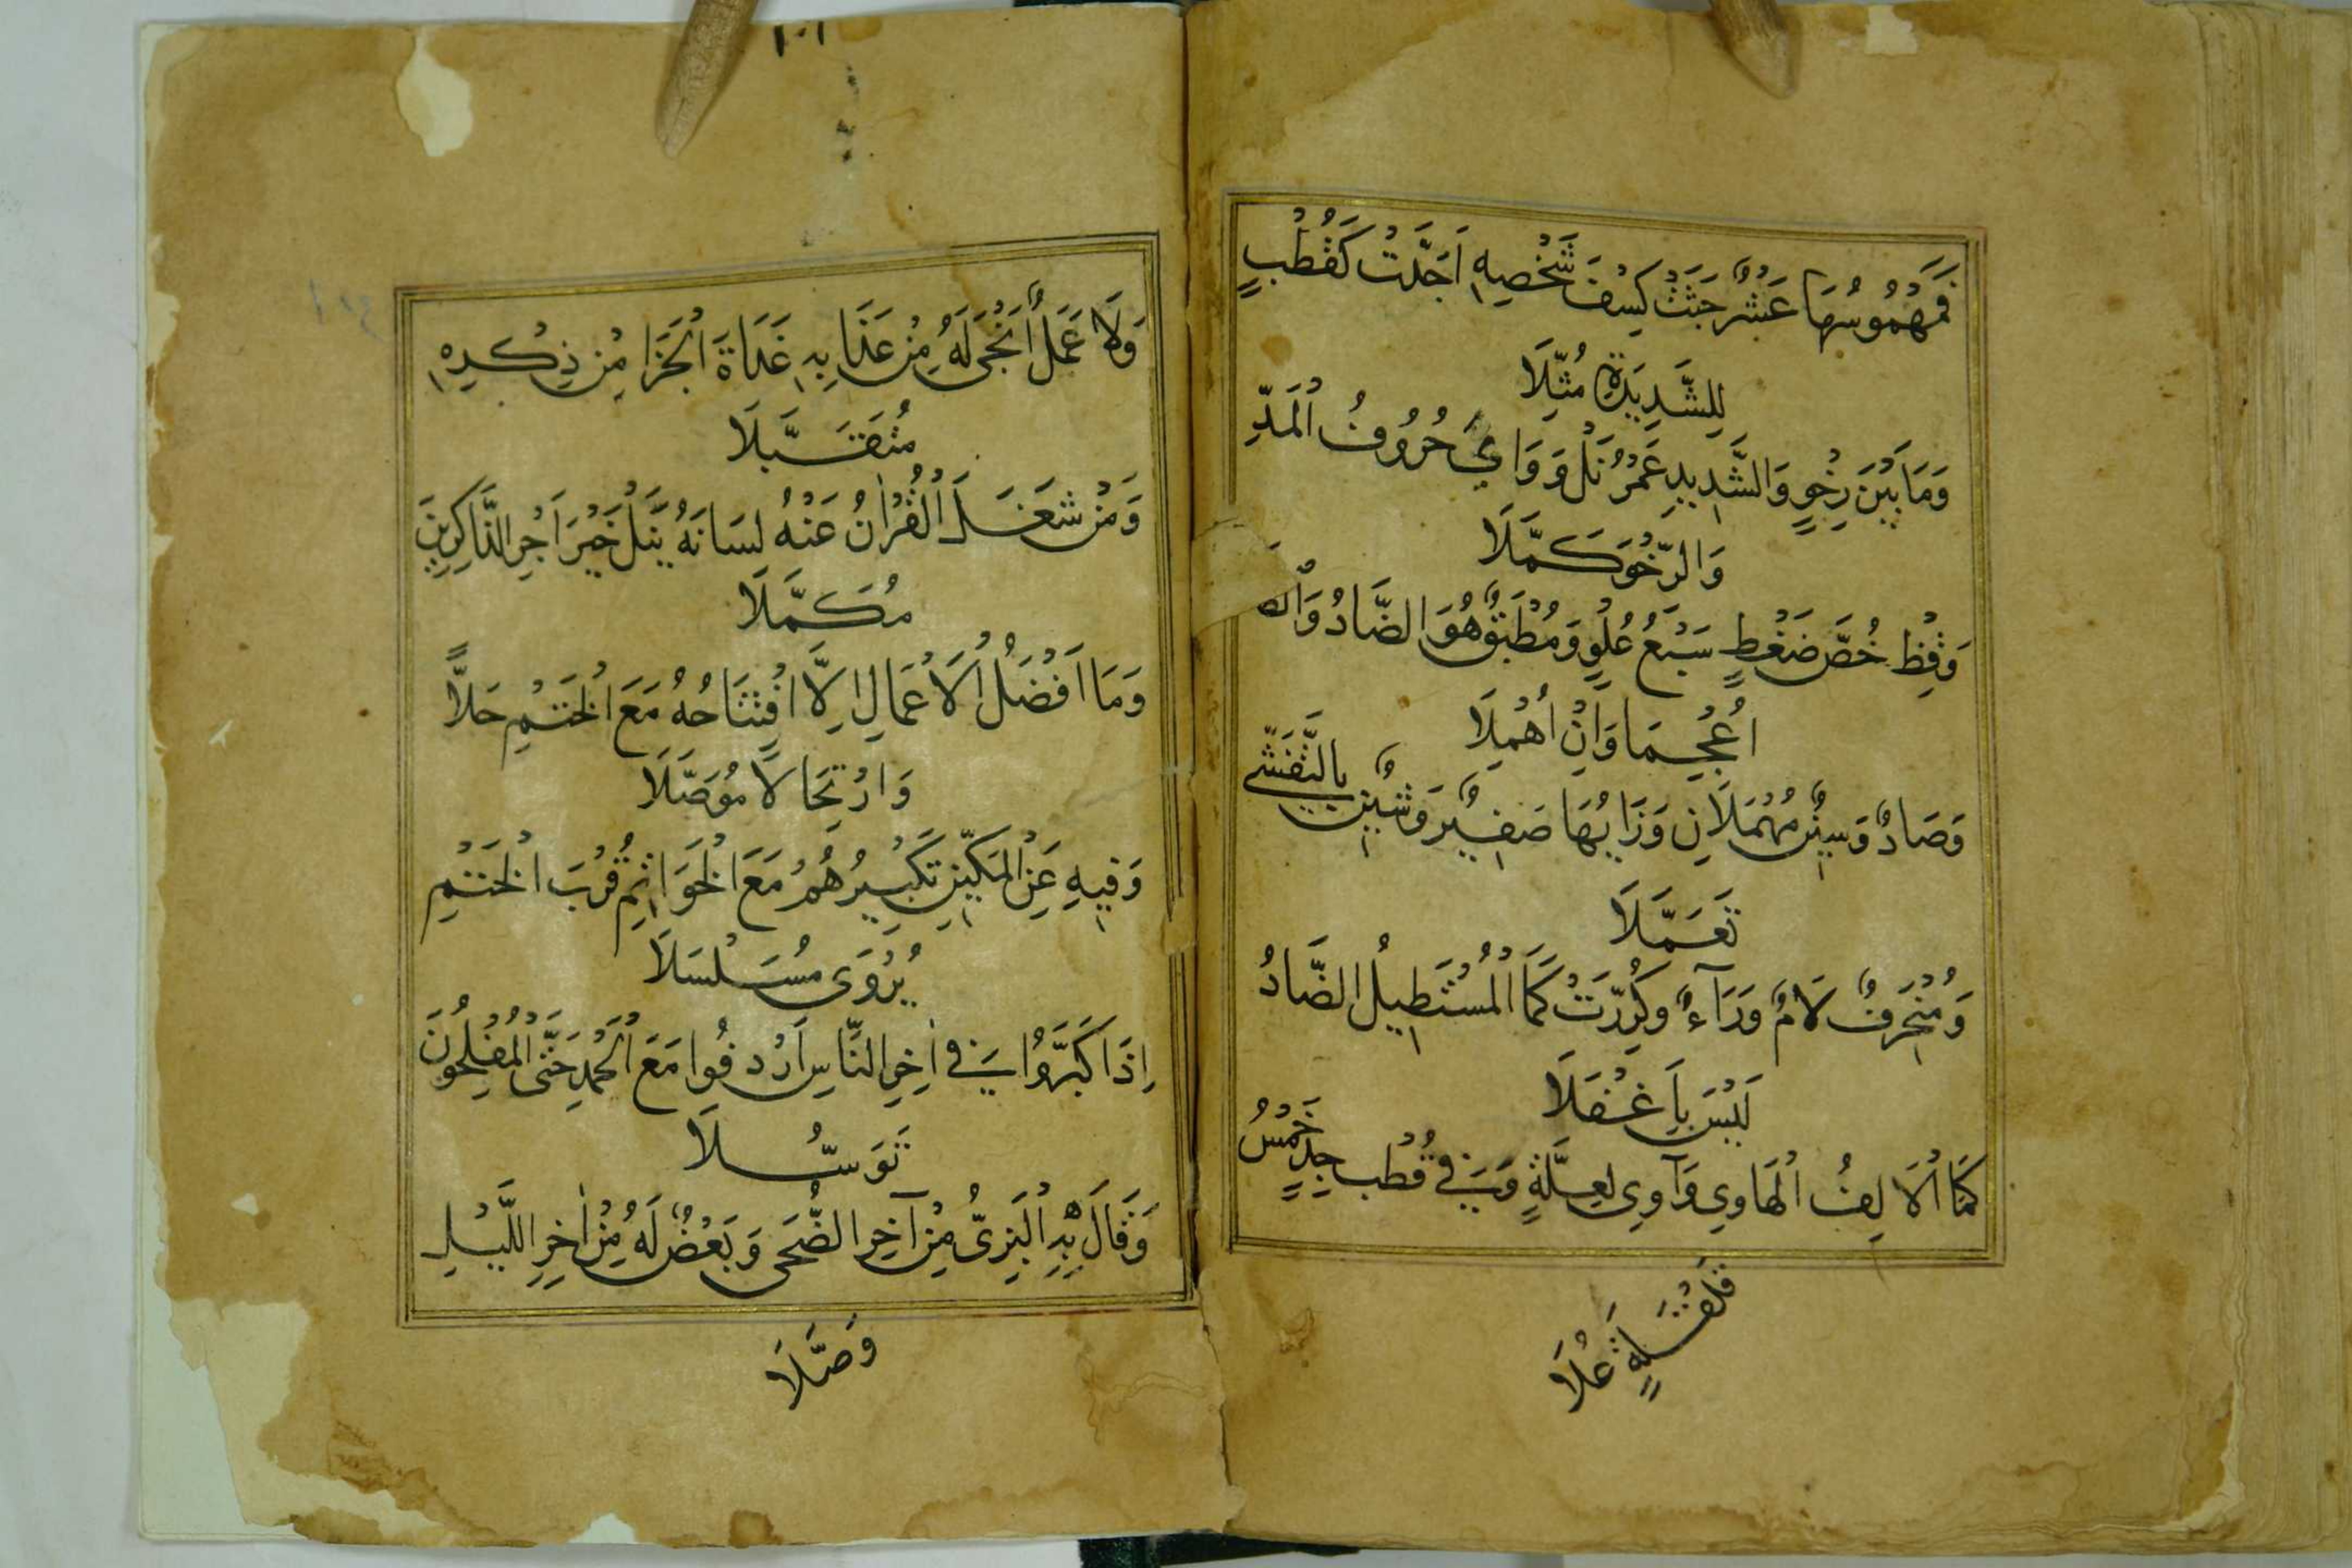 فَمَهْمُوسُهَا عَشْرٌ حَثَتْ كِسْفَ شَخْصِهِ اَجَدَّتْ كَقُطْبٍ
لِلشَّدِيدَةِ مُثِّلَا
وَمَا بَيْنَ رِخْوٍ وَالشَّدِيدِ عَمْرُ نَلْ وَ وَايٌ حُرُوفُ الْمَدِّ
وَالرِّخْوَ كَمَّلَا
وَقِظْ خُصَّ ضَغْطٍ سَبْعُ عُلْوٍ وَمُطْبَقٌ هُوَ الضَّادُ وَالظَّا
اُعْجِمَا وَاِنْ اُهْمِلَا
وَصَادٌ وَسِينٌ مُهْمَلَانِ وَزَايُهَا صَفِيرٌ وَشِينٌ بِالتَّفَشِّي
تَعَمَّلَا
وَمُنْحَرِفٌ لَامٌ وَرَآءٌ وَكُرِّرَتْ كَمَا الْمُسْتَطِيلُ الضَّادُ
لَيْسَ بِاَغْفَلَا
كَمَا الْاَلِفُ الْهَاوِي وَآوِي لِعِلَّةٍ وَفِي قُطْبِ جَدٍّ خَمْسُ
قَلْقَلَةٍ عُلَا
١٠١
وَلَا عَمَلٌ اَنْجَى لَهُ مِنْ عَذَابِهِ غَدَاةَ الْجَزَا مِنْ ذِكْرِهِ
مُتَقَبَّلَا
وَمَنْ شَغَلَ الْقُرْاٰنُ عَنْهُ لِسَانَهُ يَنَلْ خَيْرَ اَجْرِ الذَّاكِرِينَ
مُكَمَّلَا
وَمَا اَفْضَلُ الْاَعْمَالِ اِلَّا افْتِتَاحُهُ مَعَ الْخَتْمِ حَلًّا
وَارْتِحَالًا مُوَصَّلَا
وَفِيهِ عَنِ الْمَكِّينَ تَكْبِيرُهُمْ مَعَ الْخَوَاتِمِ قُرْبَ الْخَتْمِ
يُرْوَى مُسَلْسَلَا
اِذَا كَبَّرُوا فِي اٰخِرِ النَّاسِ اَرْدَفُوا مَعَ الْحَمْدِ حَتَّى الْمُفْلِحُونَ
تَوَسُّلَا
وَقَالَ بِهِ الْبَزِيُّ مِنْ آخِرِ الضُّحَى وَبَعْضٌ لَهُ مِنْ اٰخِرِ اللَّيْلِ
وَصَّلَا